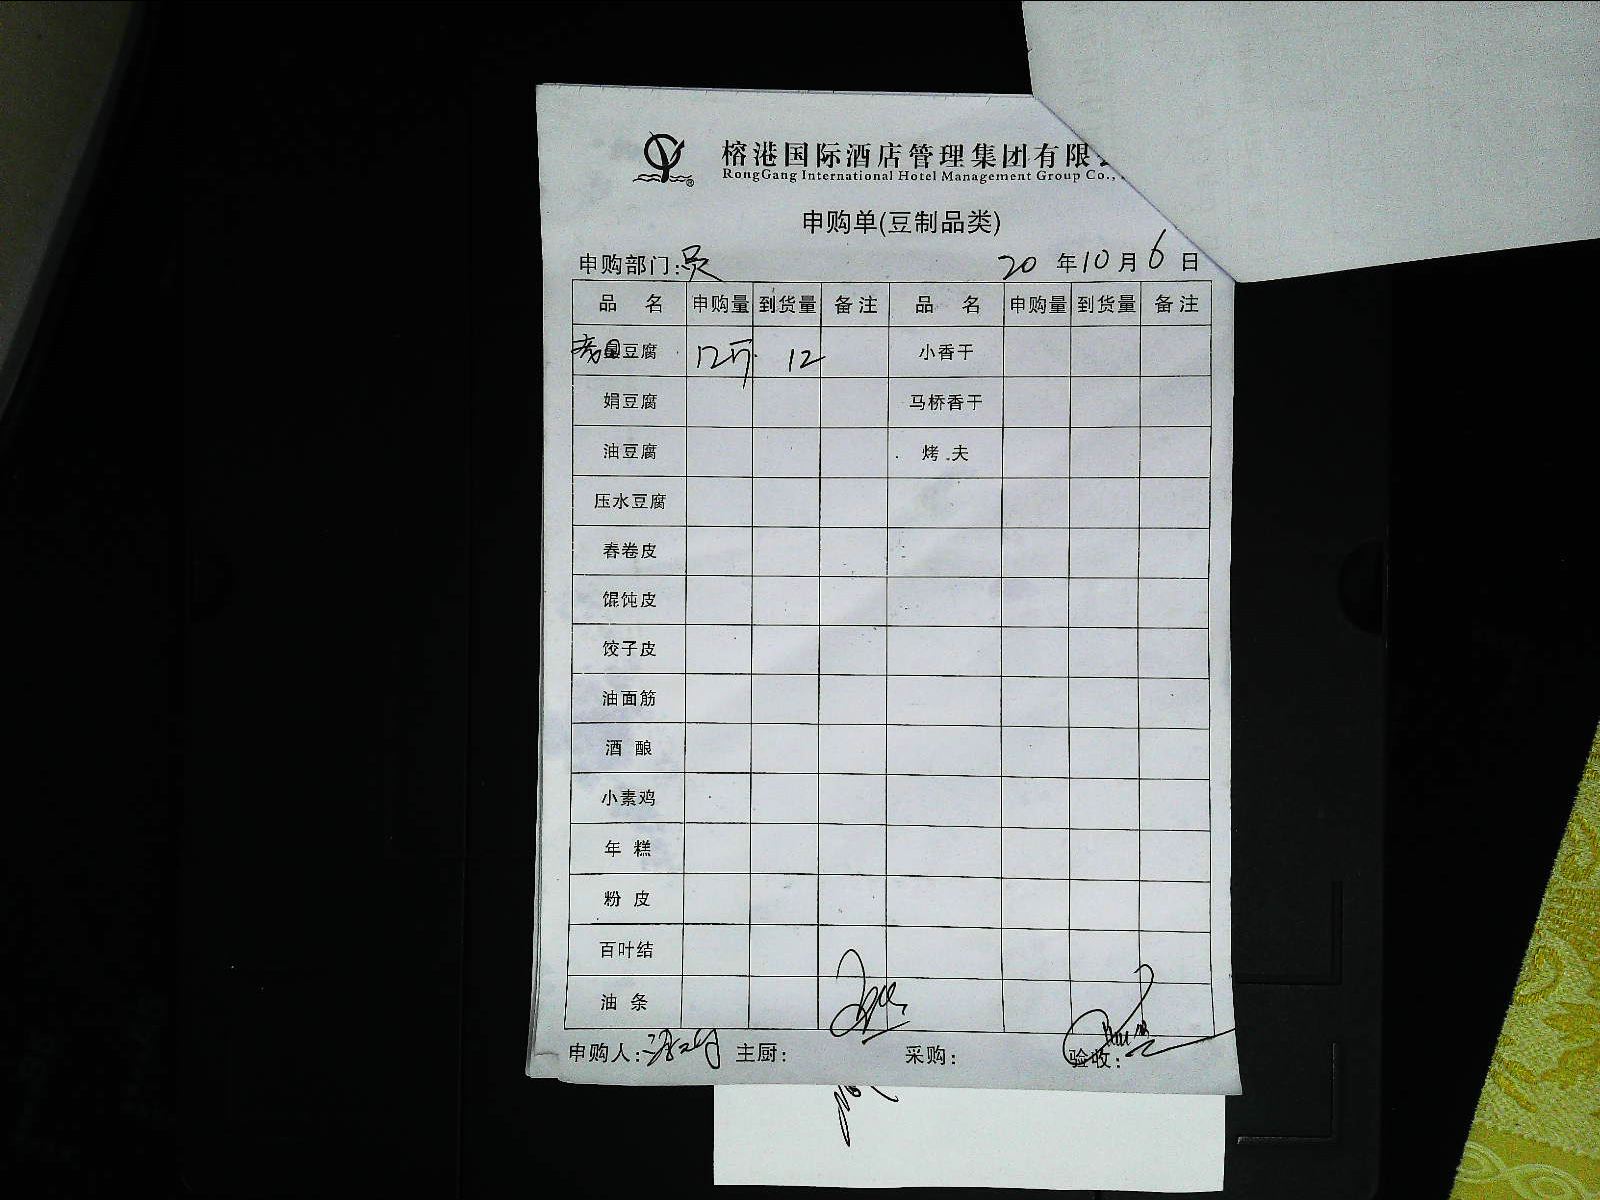 榕港国际酒店管理集团有限
RongGang International Hotel Management Group Co.,
申购单(豆制品类)
申购部门: 20 年 10 月 6 日
品 名 申购量 到货量 备注 品 名 申购量 到货量 备注
豆腐 12 12 小香干
娟豆腐 马桥香干
油豆腐 烤 夫
压水豆腐
春卷皮
馄饨皮
饺子皮
油面筋
酒 酿
小素鸡
年 糕
粉 皮
百叶结
油 条
申购人: 主厨: 采购: 验收: